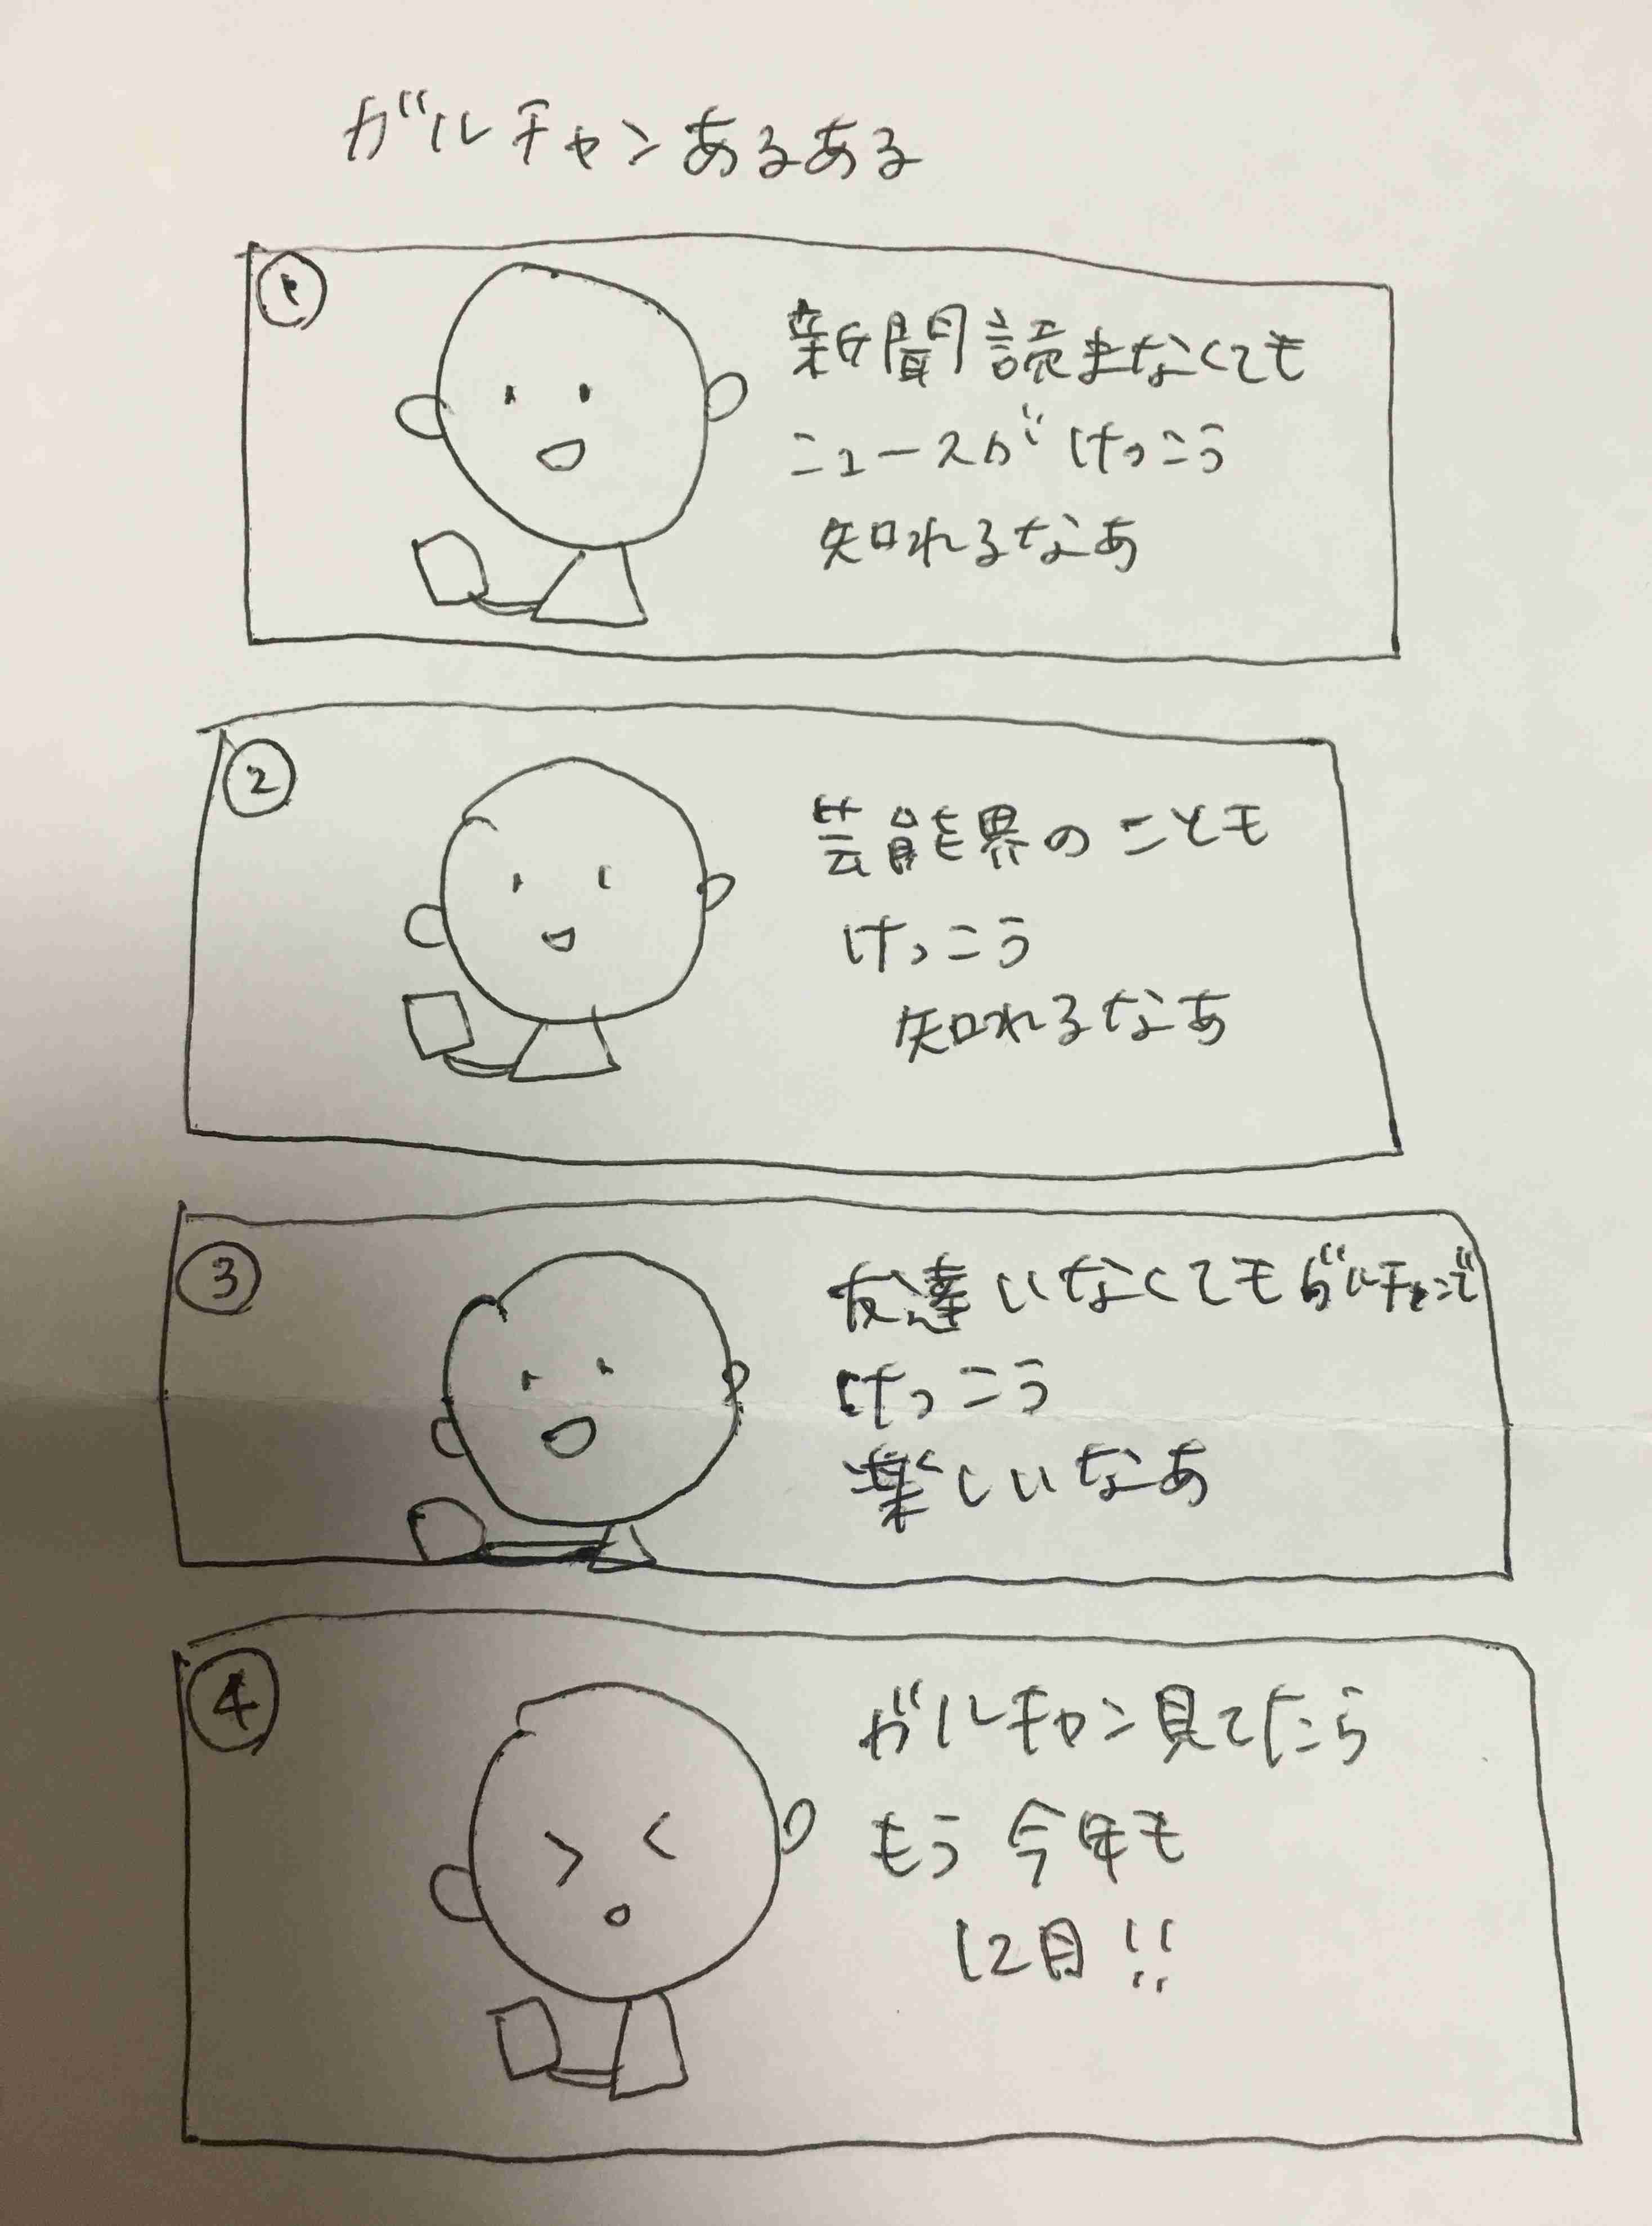 ガルチャンあるある
①
新聞読まなくても
ニュースがけっこう
知れるなあ
②
芸能界のことも
けっこう
知れるなあ
③
友達いなくてもガルチャンで
けっこう
楽しいなあ
④
ガルチャン見てたら
もう今年も
12月!!